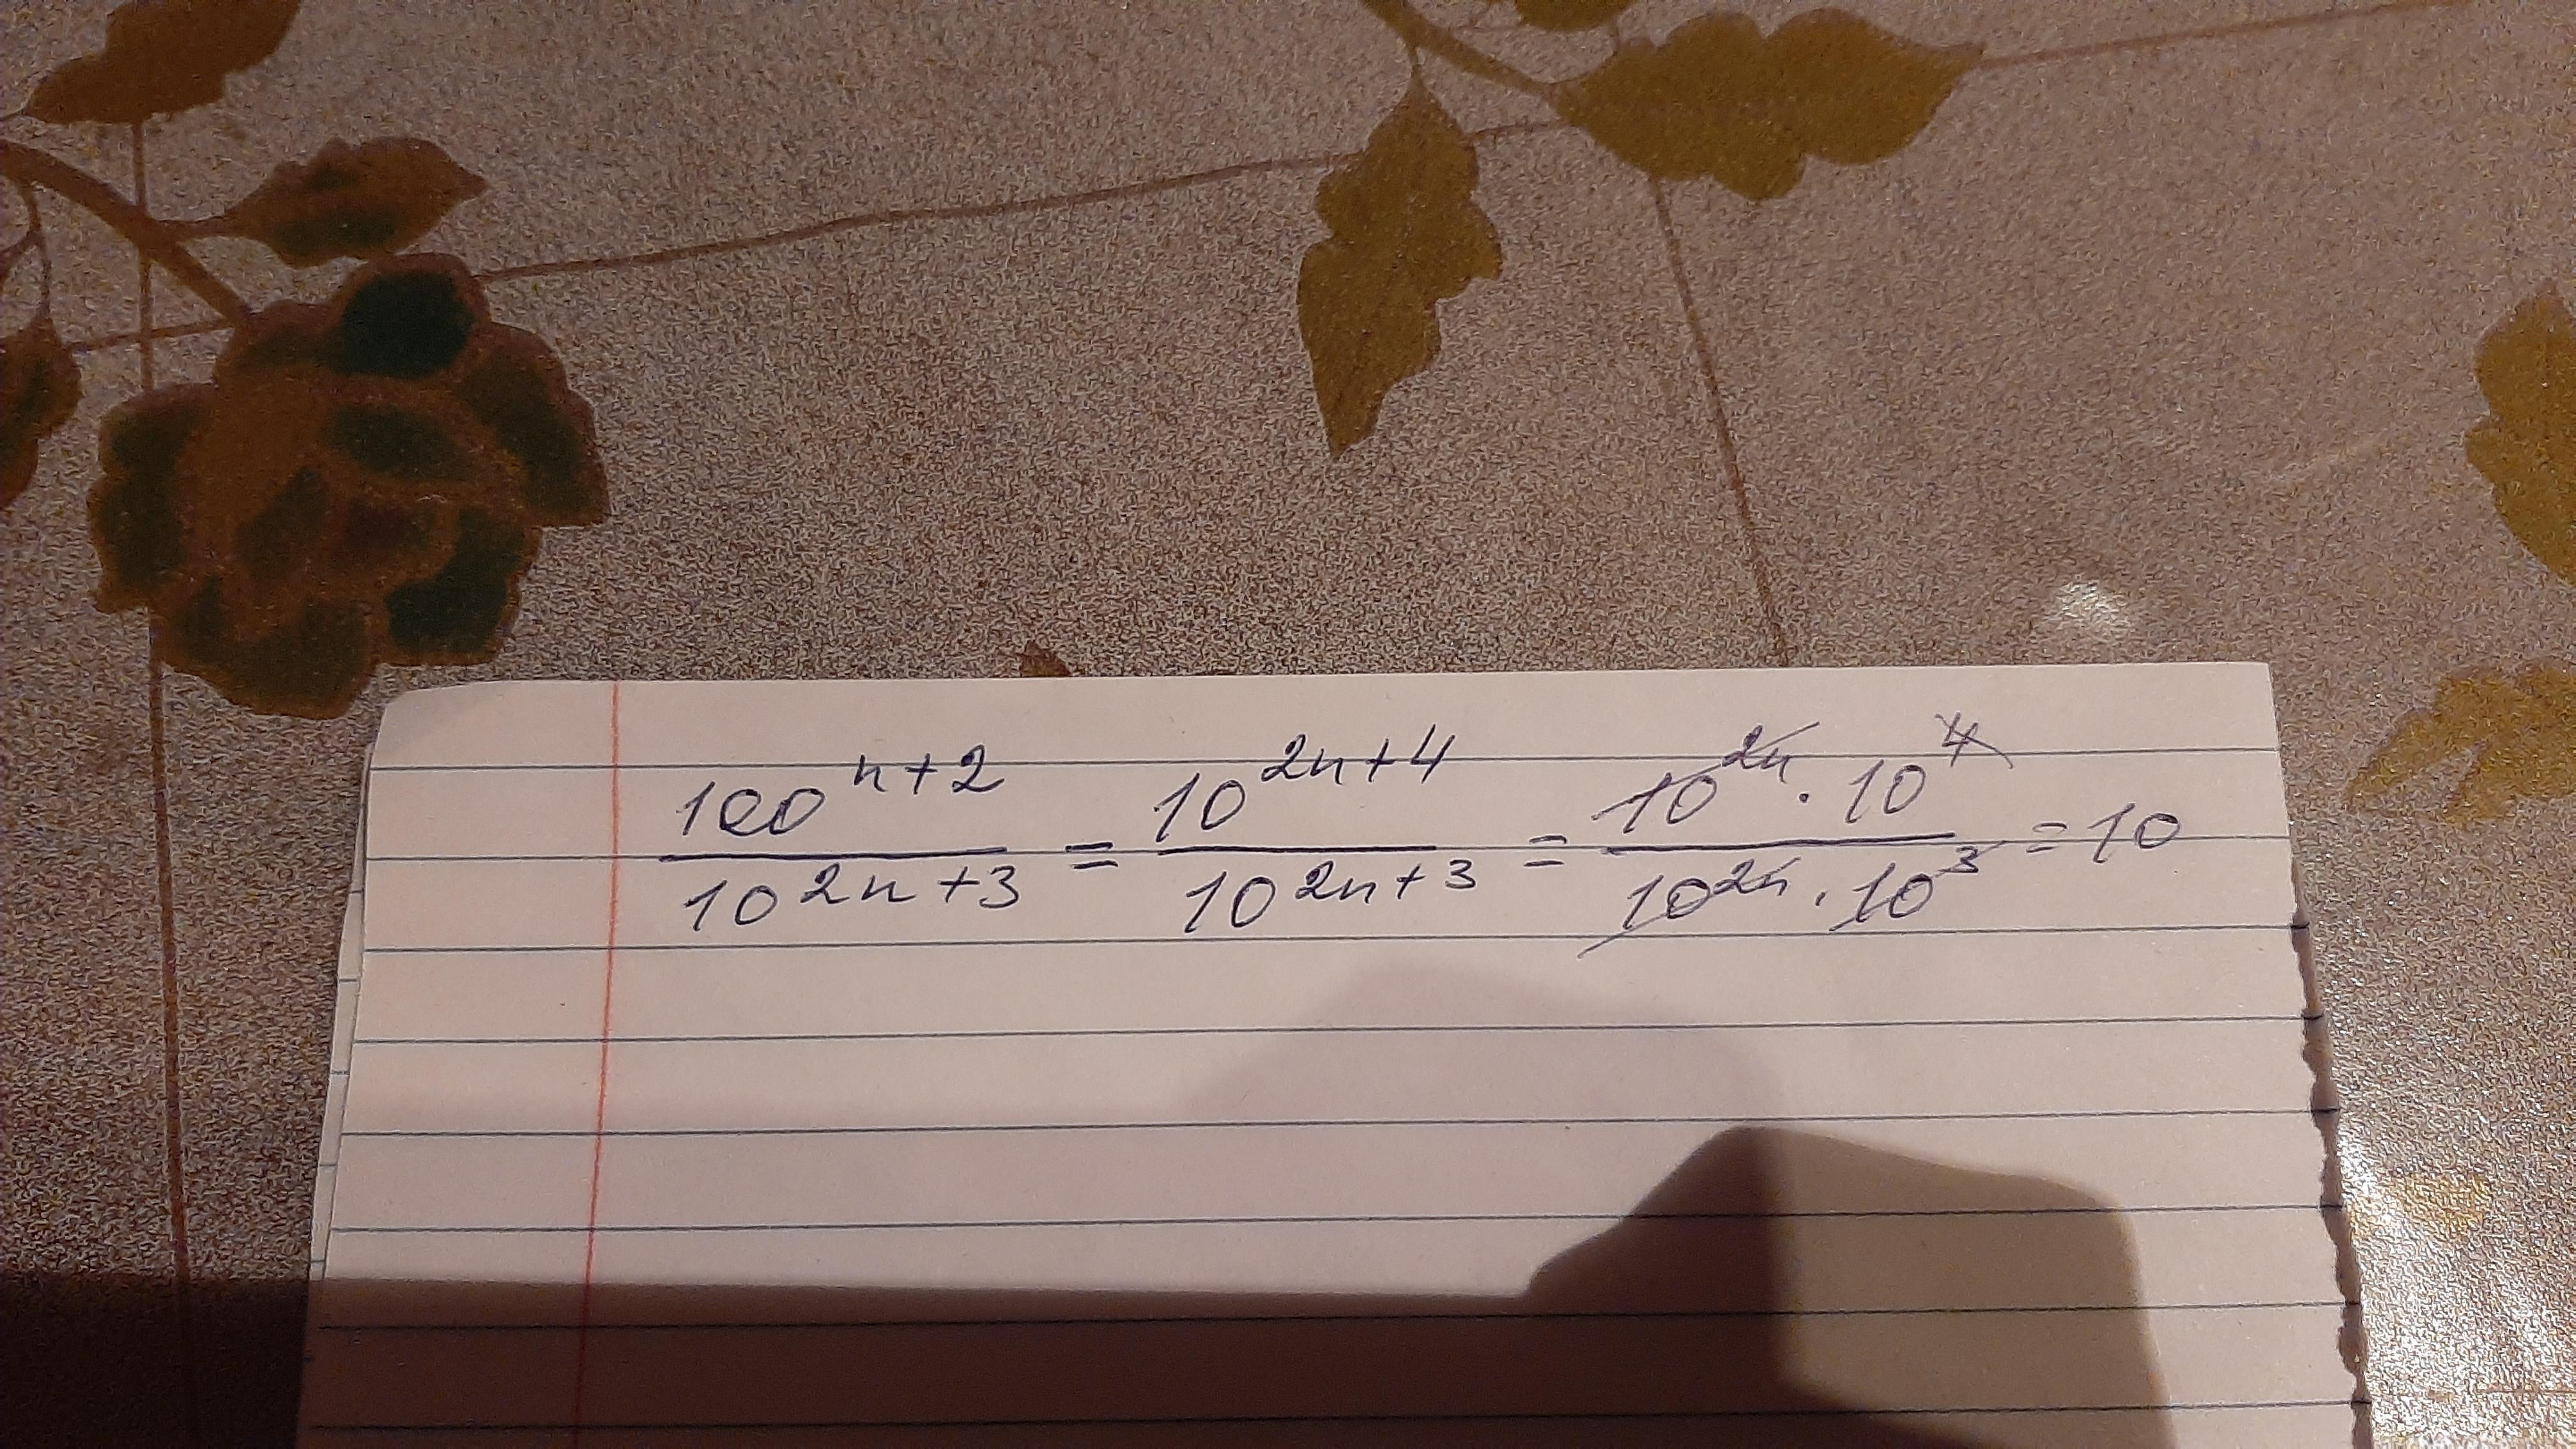 100^(n+2) / 10^(2n+3) = 10^(2n+4) / 10^(2n+3) = 10^(2n) · 10^4 / 10^(2n) · 10^3 = 10